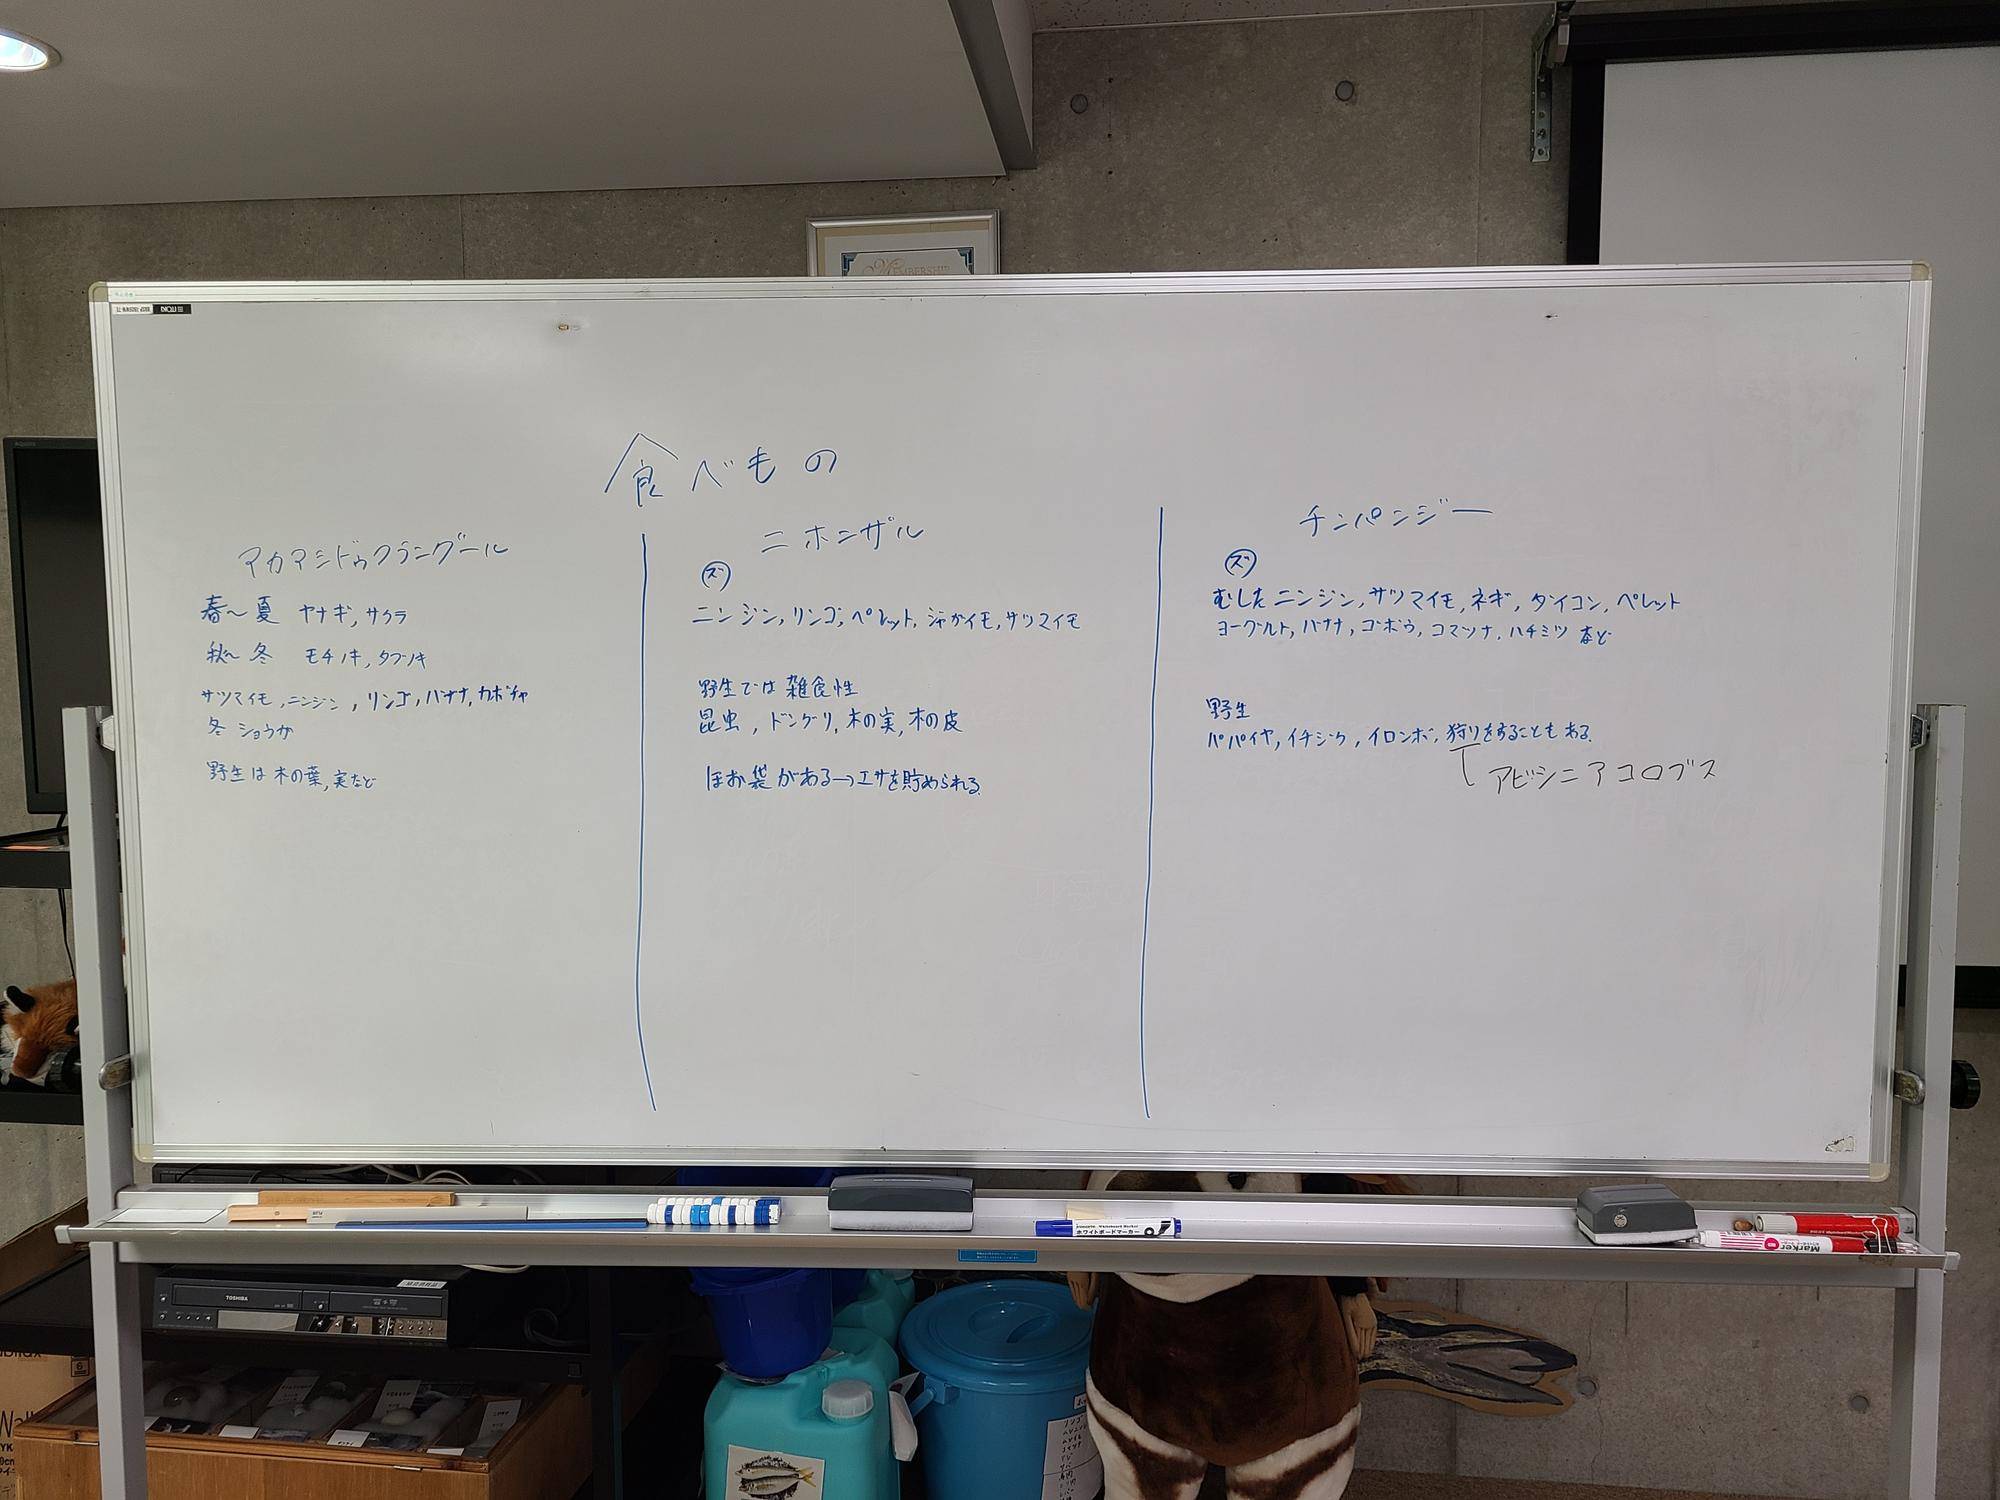 MEMBERSHIP
食べもの
アカアシドゥクラングール
春〜夏 ヤナギ,サクラ
秋〜冬 モチノキ,タブノキ
サツマイモ,ニンジン,リンゴ,バナナ,カボチャ
冬 ショウガ
野生は木の葉,実など
ニホンザル
ズ
ニンジン,リンゴ,ペレット,ジャガイモ,サツマイモ
野生では雑食性
昆虫,ドングリ,木の実,木の皮
ほお袋がある→エサを貯められる
チンパンジー
ズ
むしたニンジン,サツマイモ,ネギ,ダイコン,ペレット
ヨーグルト,バナナ,ゴボウ,コマツナ,ハチミツなど
野生
パパイヤ,イチジク,イロンボ,狩りをすることもある.
アビシニアコロブス
ITOKI
ホワイトボードマーカー
Marker
TOSHIBA
リンゴ